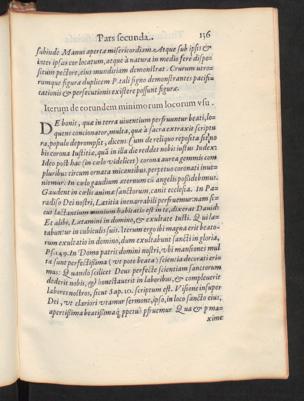 Pars secunda. 136
subinde Manus aperta misericordiam. Atque sub ipsis &
intes ipsas ece locatum, atque à natura in medio ferè dispo
situm pectore, eius munditiam demonstrat. Crurum utro-
rumque figura duplicem P. tali signo demonstrantes pacifi
cationis & persecutionis existere possunt figuræ.
Iterum de eorundem minimorum locorum usu.
DE bonit, qua in terra viventium perfruuntur beati, lo
quens concionator, multa, quæ à sacra extraxit scriptu
ra, populo deprompsit, dicens
bis corona Iustitiæ, quā in illa die reddet nobis iustus Iudex:
Ideo post hac (in cœlo videlicet) corona aurea gemmis com
pluribus circum ornata micantibus, perpetuo coronati inve
niemur. In cœlo gaudium æternum cū angelis possidebimus.
Gaudent in cœlis animæ sanctorum, canit ecclesia. In Pa
radiso Dei nostri, Lætitia inenarrabili perfruemur: nam si
cut lætantium omnium habitatio est in te, dixerat David:
Et alibi, Lætamini in domino, & exultate Iusti. Qui læ-
tabuntur in cubilibus suis. Iterum ergo ibi magna erit beato-
rum exultatio in domino, dum exultabunt sancti in gloria,
Psa. 149. In Domo patris domini nostri, ubi mansiones mul
ta sunt perfectissima (ut pote beata) scientia decorati eri-
mus: Quando scilicet Deus perfectè scientiam sanctorum
dederit nobis, & honestaverit in laboribus, & compleverit
labores nostros, sicut Sap. 10. scriptum est. Visione insuper
Dei, ut clariori utamur sermone, ipso, in loco sancto eius,
apertissima beatissima
xime